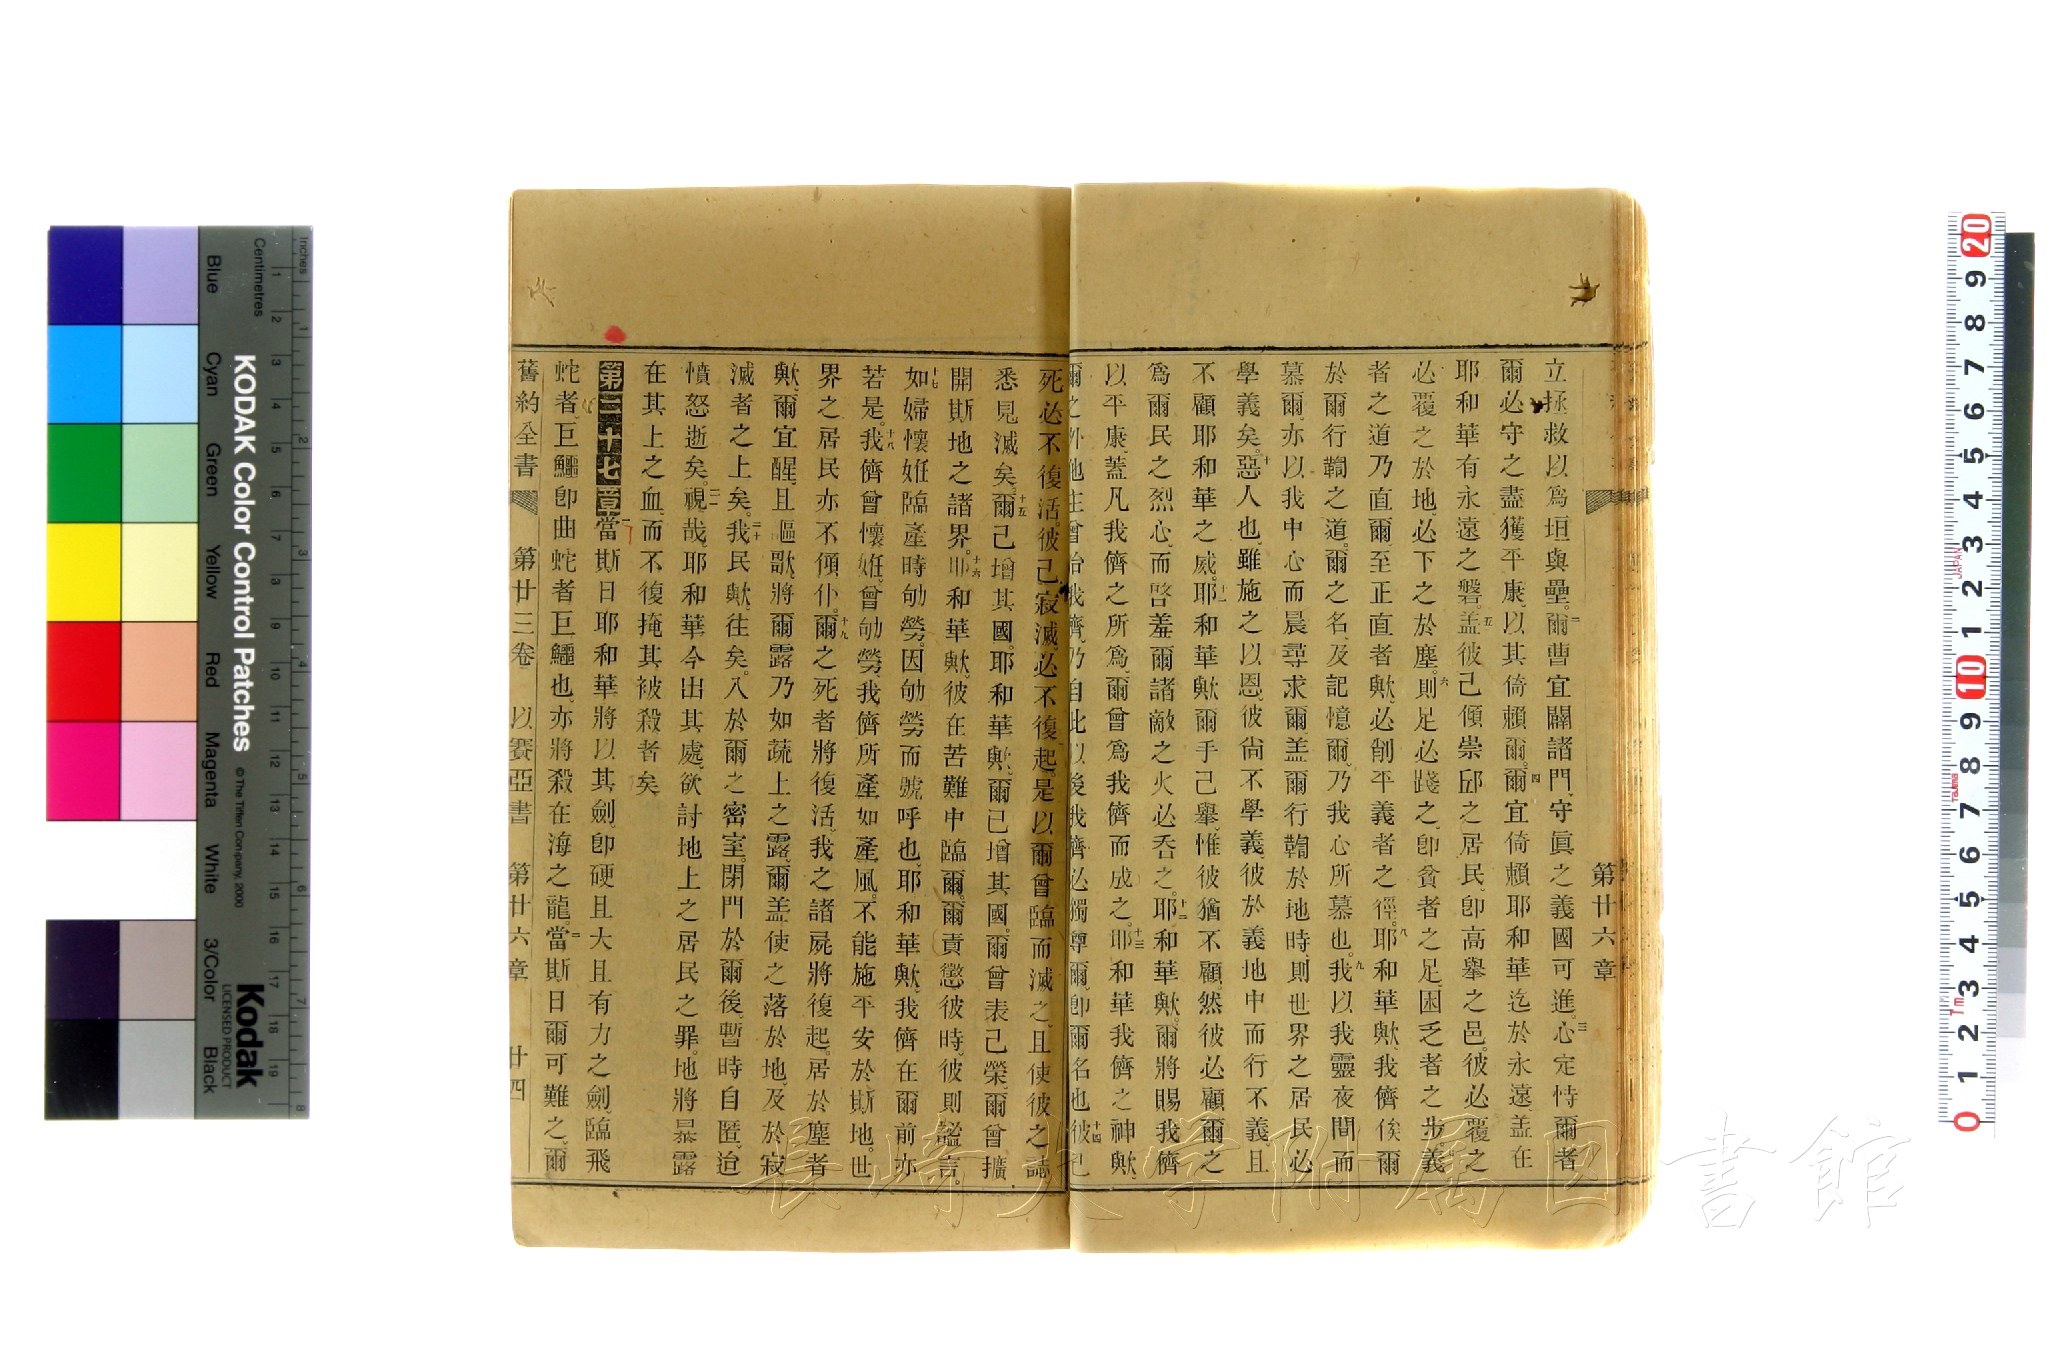 第廿六章
立拯救以爲垣與壘。二爾曹宜闢諸門、守眞之義國可進。三心定恃爾者
爾必守之盡獲平康、以其倚賴爾。四爾宜倚賴耶和華迄於永遠、盖在
耶和華有永遠之磐。五盖彼已傾崇邱之居民、卽高擧之邑。彼必覆之
必覆之於地、必下之於塵。六則足必踐之、卽貧者之足、困乏者之步。義
者之道乃直、爾至正直者歟、必削平義者之徑。八耶和華歟、我儕俟爾
於爾行鞫之道、爾之名、及記憶爾、乃我心所慕也。九我以我靈夜間而
慕爾、亦以我中心而晨尋求爾、盖爾行鞫於地時、則世界之居民必
學義矣。十惡人也、雖施之以恩、彼尙不學義、彼於義地中而行不義、且
不顧耶和華之威。十一耶和華歟、爾手已擧、惟彼猶不顧、然彼必顧爾之
爲爾民之烈心、而啓羞爾諸敵之火必呑之。十二耶和華歟、爾將賜我儕
以平康、蓋凡我儕之所爲、爾曾爲我儕而成之。十三耶和華我儕之神歟、
爾之外他主曾治我儕、乃自此以後我儕必獨尊爾、卽爾名也。十四彼已
死必不復活。彼已寂滅、必不復起。是以爾曾臨而滅之、且使彼之誌
悉見滅矣。十五爾已增其國。耶和華歟、爾已增其國。爾曾表己榮、爾曾擴
開斯地之諸界。十六耶和華歟、彼在苦難中臨爾。爾責懲彼時、彼則謐言。
十七如婦懷姙臨產時劬勞、因劬勞而號呼也、耶和華歟、我儕在爾前亦
若是。十八我儕曾懷姙、曾劬勞、我儕所產如產風。不能施平安於斯地。世
界之居民亦不傾仆。十九爾之死者將復活、我之諸屍將復起。居於塵者
歟、爾宜醒、且謳歌、將爾露乃如蔬上之露、爾盖使之落於地、及於寂
滅者之上矣。二十我民歟、往矣。入於爾之密室。閉門於爾後、暫時自匿、迨
憤怒逝矣。二一視哉、耶和華今出其處、欲討地上之居民之罪。地將暴露
在其上之血、而不復掩其被殺者矣
第二十七章一當斯日耶和華將以其劍、卽硬且大且有力之劍、臨飛
蛇者、巨鱷卽曲蛇者巨鱷也、亦將殺在海之龍。二當斯日爾可難之、爾
舊約全書 第廿三卷 以賽亞書 第廿六章 廿四
KODAK Color Control Patches
© The Tiffen Company, 2000
Kodak
LICENSED PRODUCT
Inches
Centimetres
Blue Cyan Green Yellow Red Magenta White 3/Color Black
JAPAN
Tajima
長崎大学附属図書館